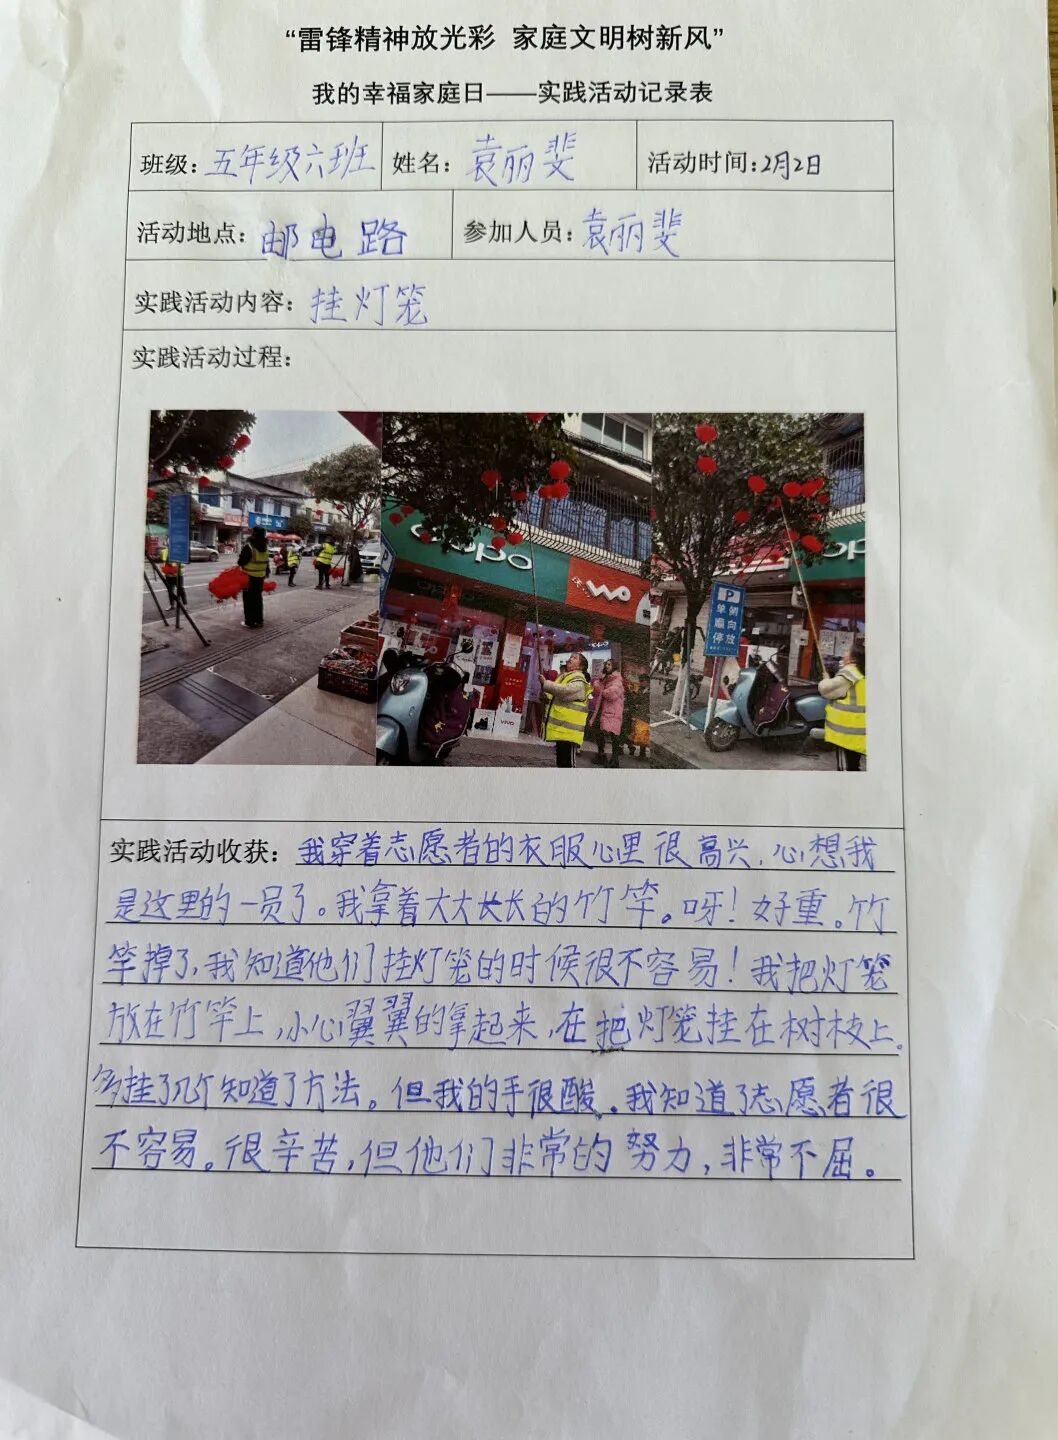 “雷锋精神放光彩 家庭文明树新风”
我的幸福家庭日——实践活动记录表
班级：五年级六班 姓名：袁丽斐 活动时间：2月2日
活动地点：邮电路 参加人员：袁丽斐
实践活动内容：挂灯笼
实践活动过程：
oppo
vivo
P
单侧
顺向
停放
实践活动收获：我穿着志愿者的衣服心里很高兴，心想我
是这里的一员了。我拿着大大长长的竹竿。呀！好重。竹
竿掉了，我知道他们挂灯笼的时候很不容易！我把灯笼
放在竹竿上，小心翼翼的拿起来，在把灯笼挂在树枝上。
多挂了几个知道了方法。但我的手很酸。我知道了志愿者很
不容易。很辛苦，但他们非常的努力，非常不屈。